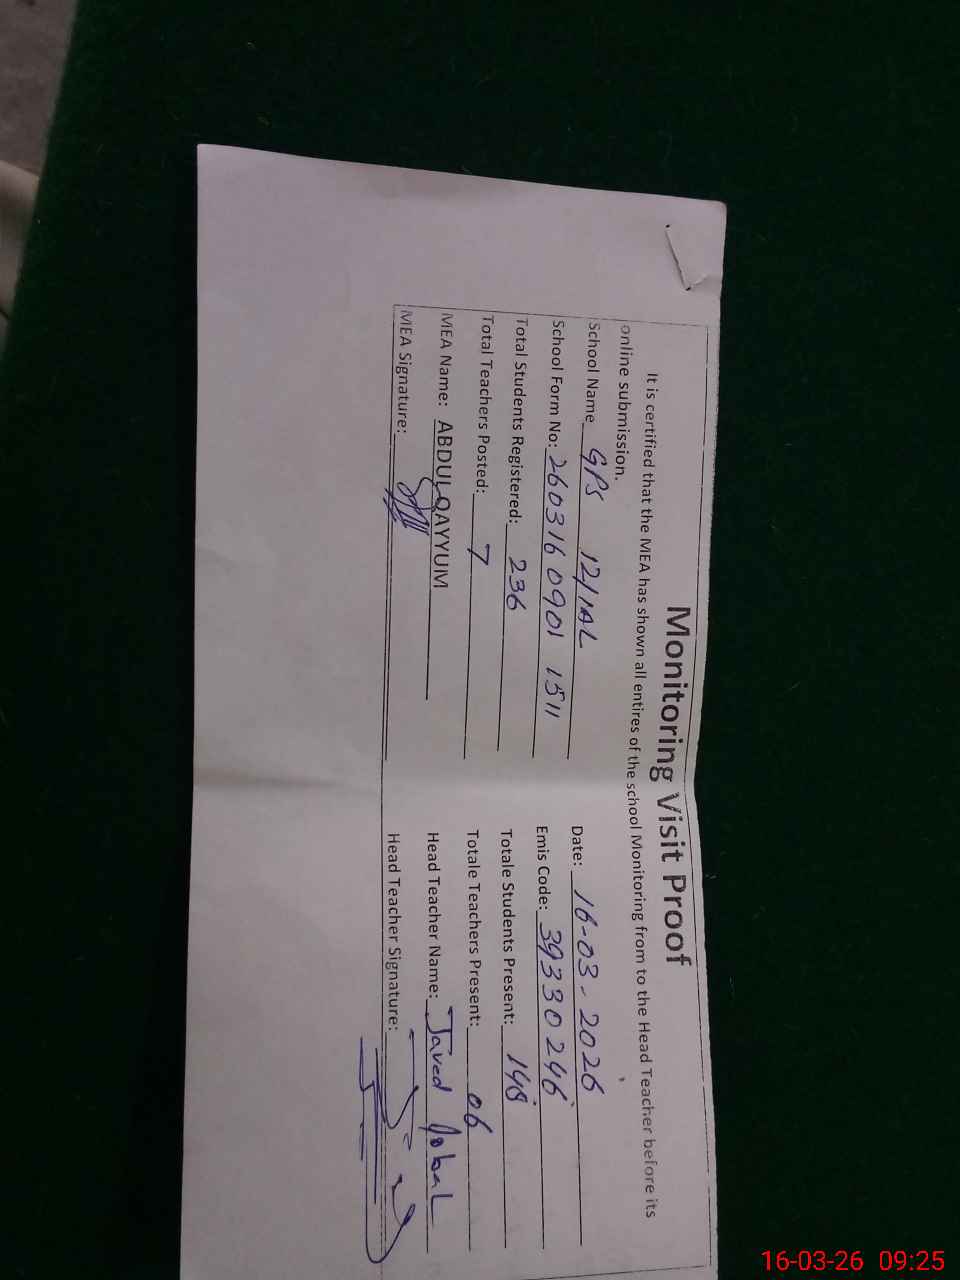 Monitoring Visit Proof
It is certified that the MEA has shown all entires of the school Monitoring from to the Head Teacher before its
online submission.
School Name GPS 12/1AL Date: 16-03-2026
School Form No: 260316 0901 1511 Emis Code: 39330246
Total Students Registered: 236 Totale Students Present: 148
Total Teachers Posted: 7 Totale Teachers Present: 06
MEA Name: ABDUL QAYYUM Head Teacher Name: Javed Iqbal
MEA Signature: Head Teacher Signature:
16-03-26 09:25